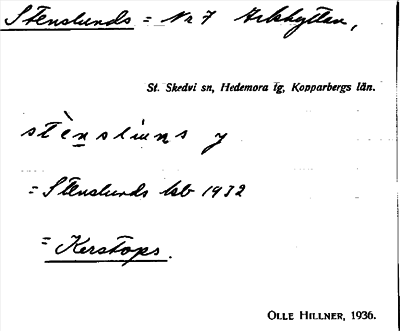 Stenslunds = Nr 7 Arkhyttan,
St. Skedvi sn, Hedemora tg, Kopparbergs län.
stènsluns y
= Stenslunds kb 1932
= Kerstops.
OLLE HILLNER, 1936.